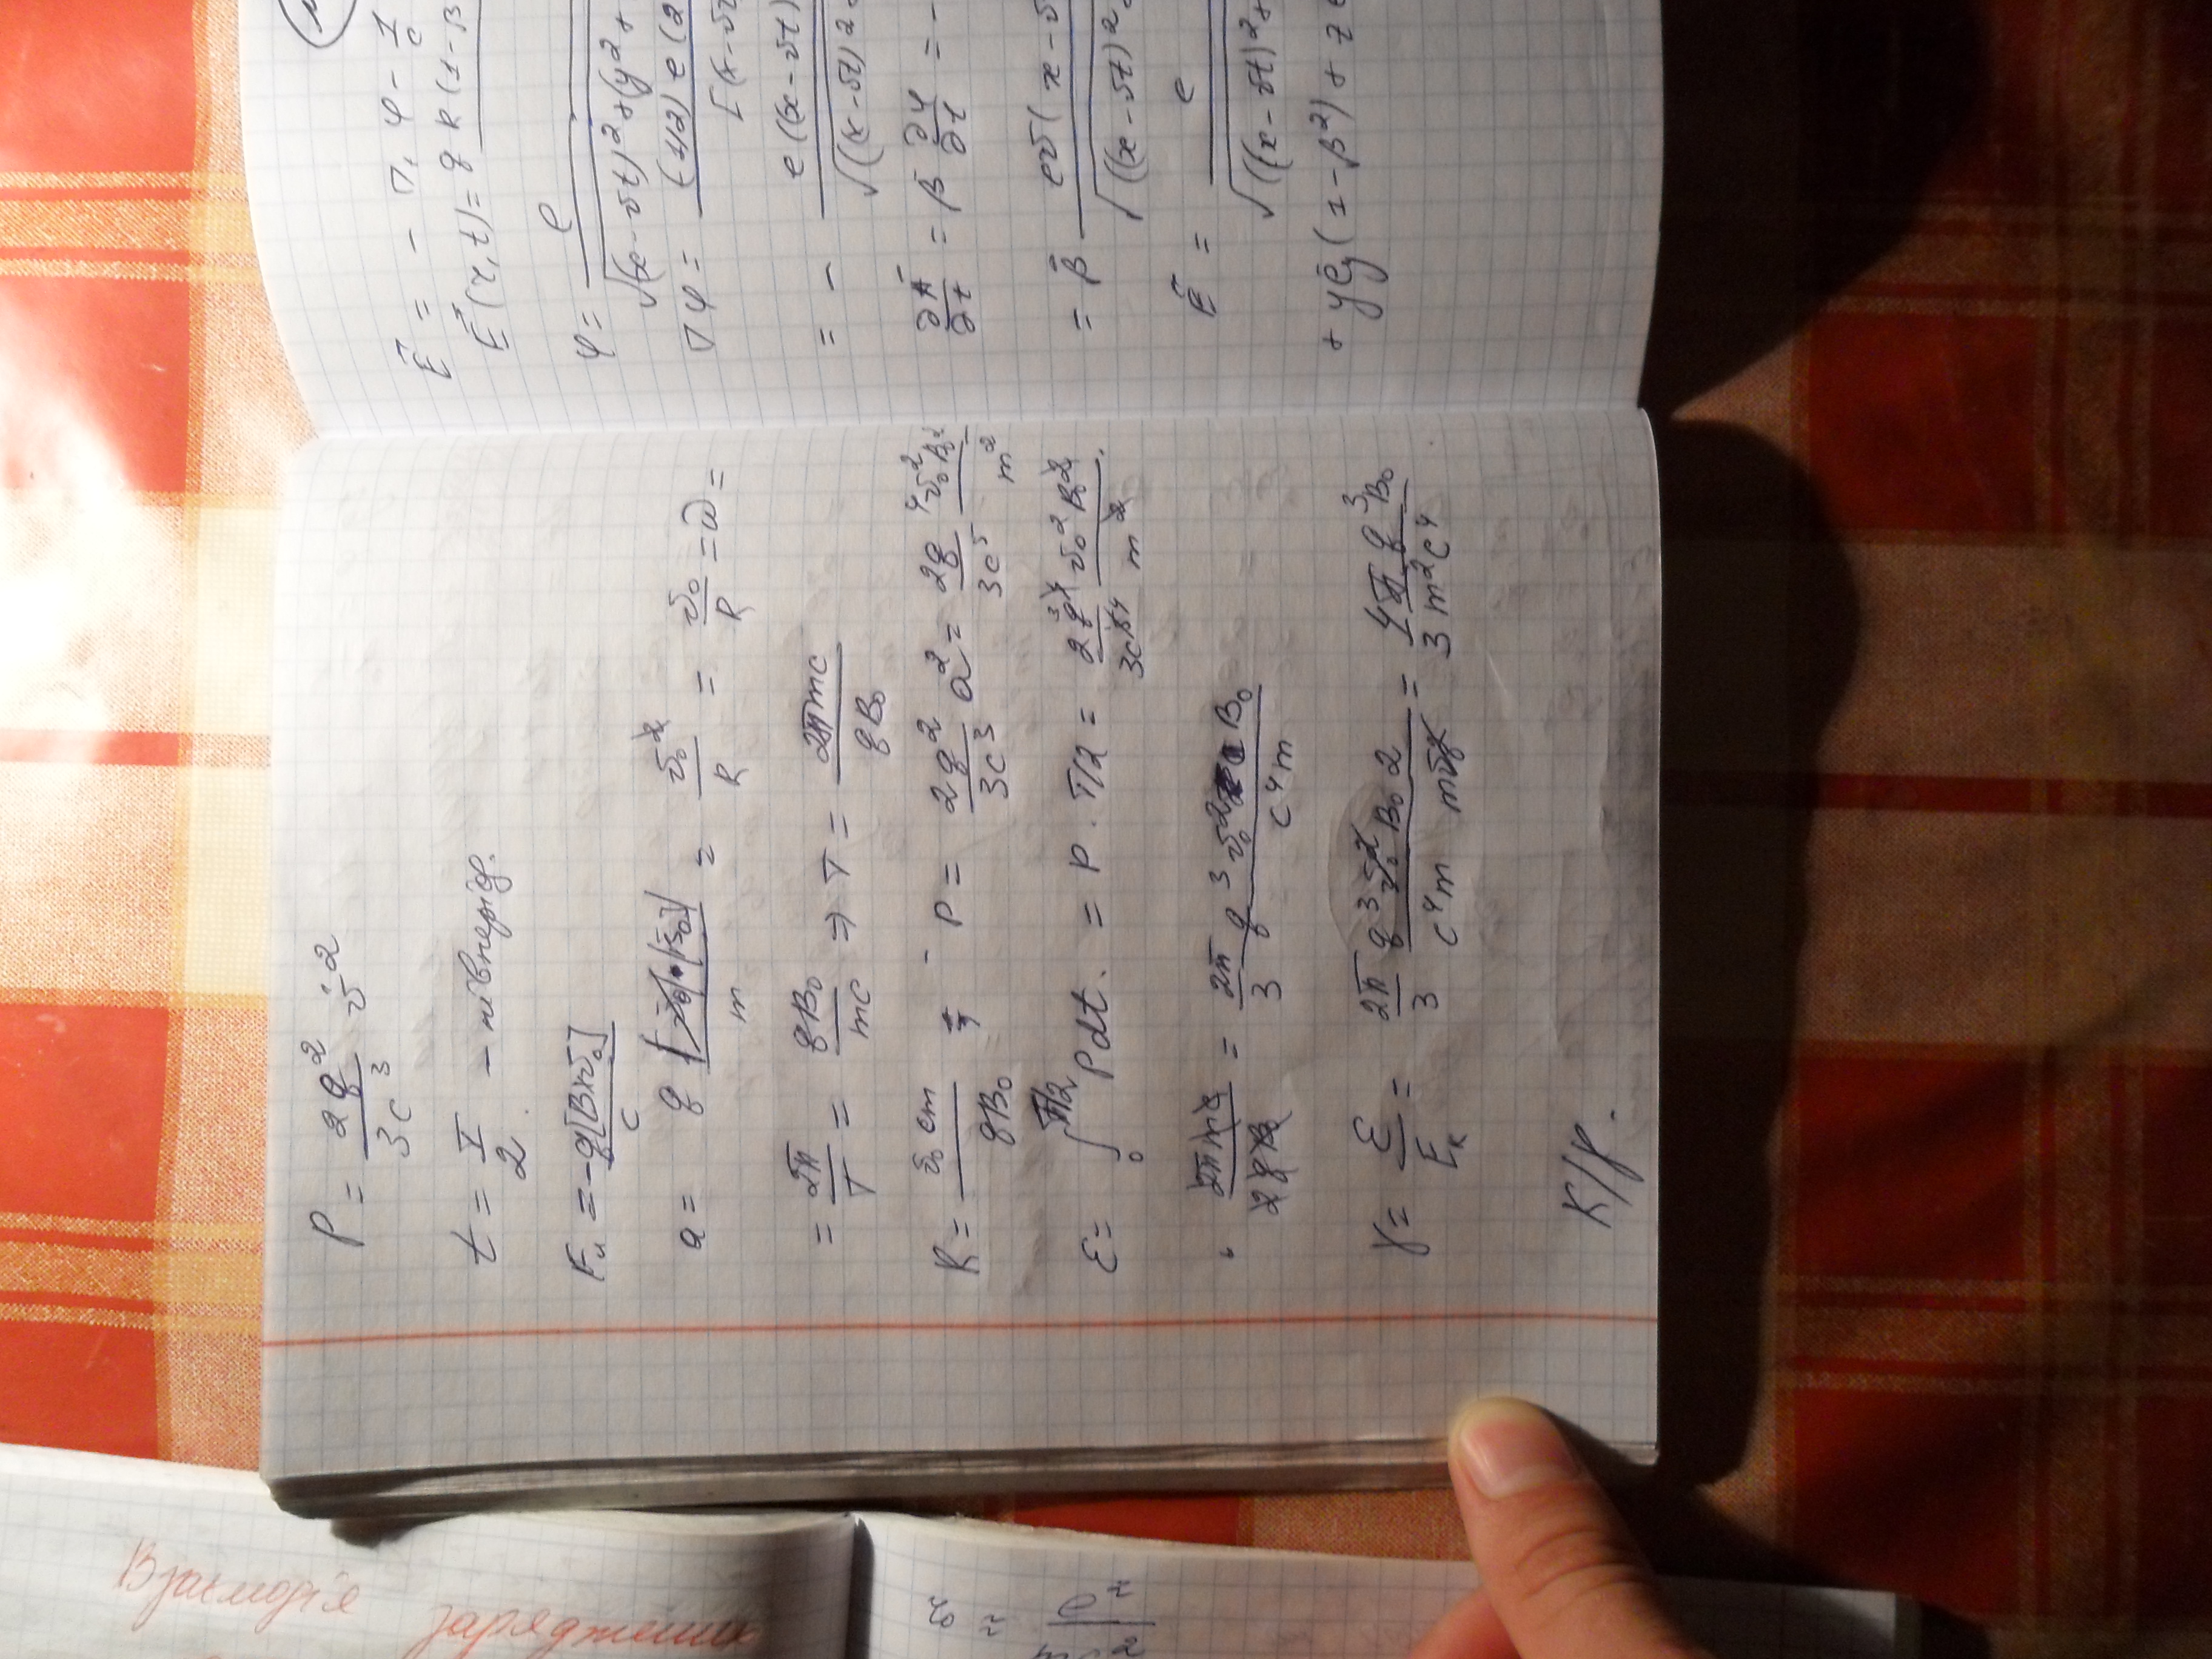 P = 2q²/3c³ v̇²
t = T/2 - півперіод.
Fл = - q[B×v₀]/c
a = q [v₀]·[B₀]/m = v₀²/R = v₀/R = ω =
= 2π/T = qB₀/mc ⇒ T = 2πmc/qB₀
R = v₀cm/qB₀ ; P = 2q²/3c³ a² = 2q⁴/3c⁵ v₀²B₀²/m²
ε = ∫₀^T/2 Pdt. = P · T/2 = 2q³/3c⁴ v₀²B₀²/m ·
· 2πmc/2qB₀ = 2π/3 q³v₀²B₀/c⁴m
γ = ε/Eк = 2π/3 q³v₀²B₀2/c⁴m mv₀² = 4π/3 q³B₀/m²c⁴
К/р.
E⃗ = - ∇, φ - 1/c
E⃗(r,t) = q R(1-β
φ = e/√(x-vt)²+(y²+
∇φ = (-1/2) e (2/[(x-vt
= - e((x-vt)/√((x-vt)2
∂A⃗/∂t = β⃗ ∂φ/∂t = -
= β⃗ ev(x-v/√((x-vt)2
E⃗ = e/√((x-vt)2+
+ ye⃗y(1-β²) + z
Взаємодія
заряджених